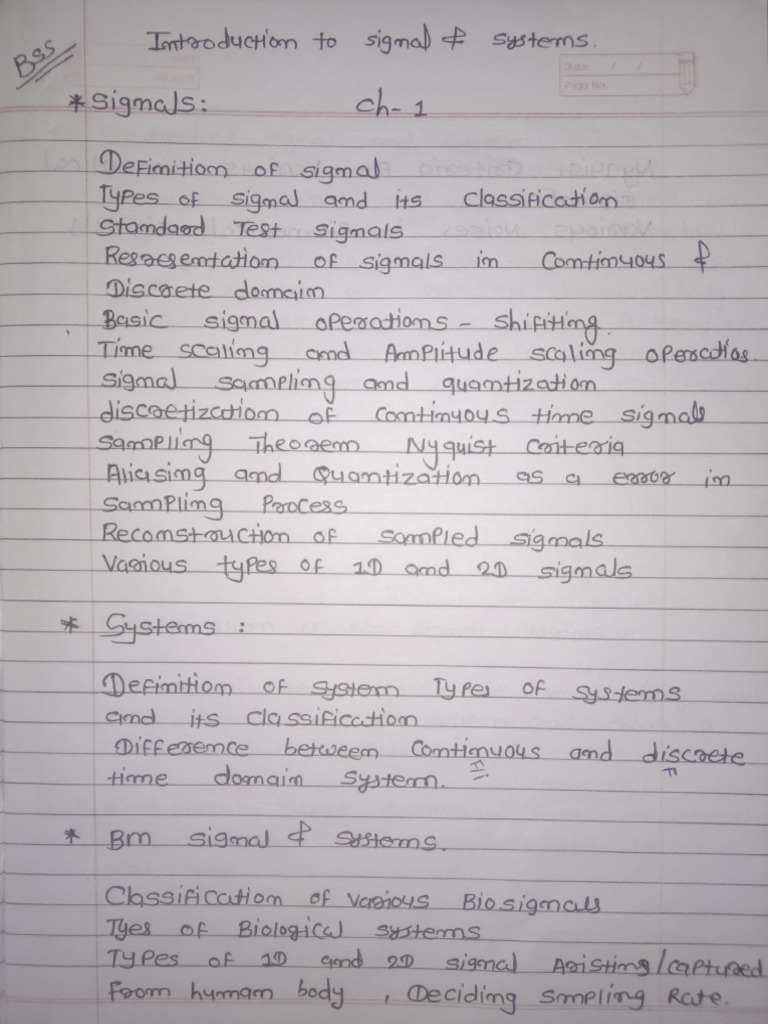 BSS
Introduction to signal & systems.
Date: / /
Page No.
* Signals: Ch-1
Definition of signal
Types of signal and its classification
Standard Test signals
Representation of signals in Continuous &
Discrete domain
Basic signal operations - Shifiting.
Time scaling and Amplitude scaling operatios
signal sampling and quantization
discretization of continuous time signals
Sampling Theorem Nyquist Criteria
Aliasing and Quantization as a error in
Sampling Process
Reconstruction of sampled signals
Various types of 1D and 2D signals
* Systems :
Definition of system Types of systems
and its classification
Difference between continuous and discrete
time domain system.
* Bm signal & systems.
Classification of various Biosignals
Tyes of Biological systems
Types of 1D and 2D signal Aristing/captured
from human body , Deciding Smpling Rate.